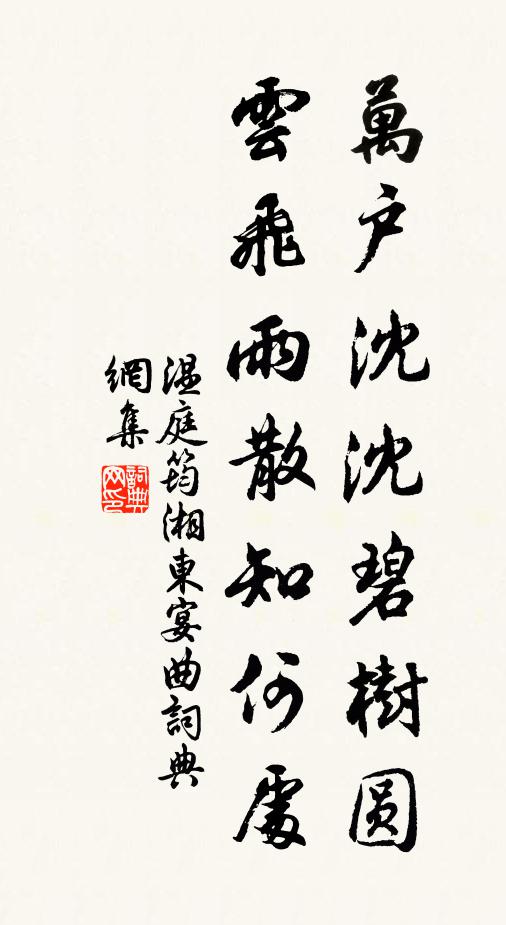 萬户沈沈碧樹圆
雲飛雨散知何處
温庭筠湘東宴曲詞典
網集
詞典
网印